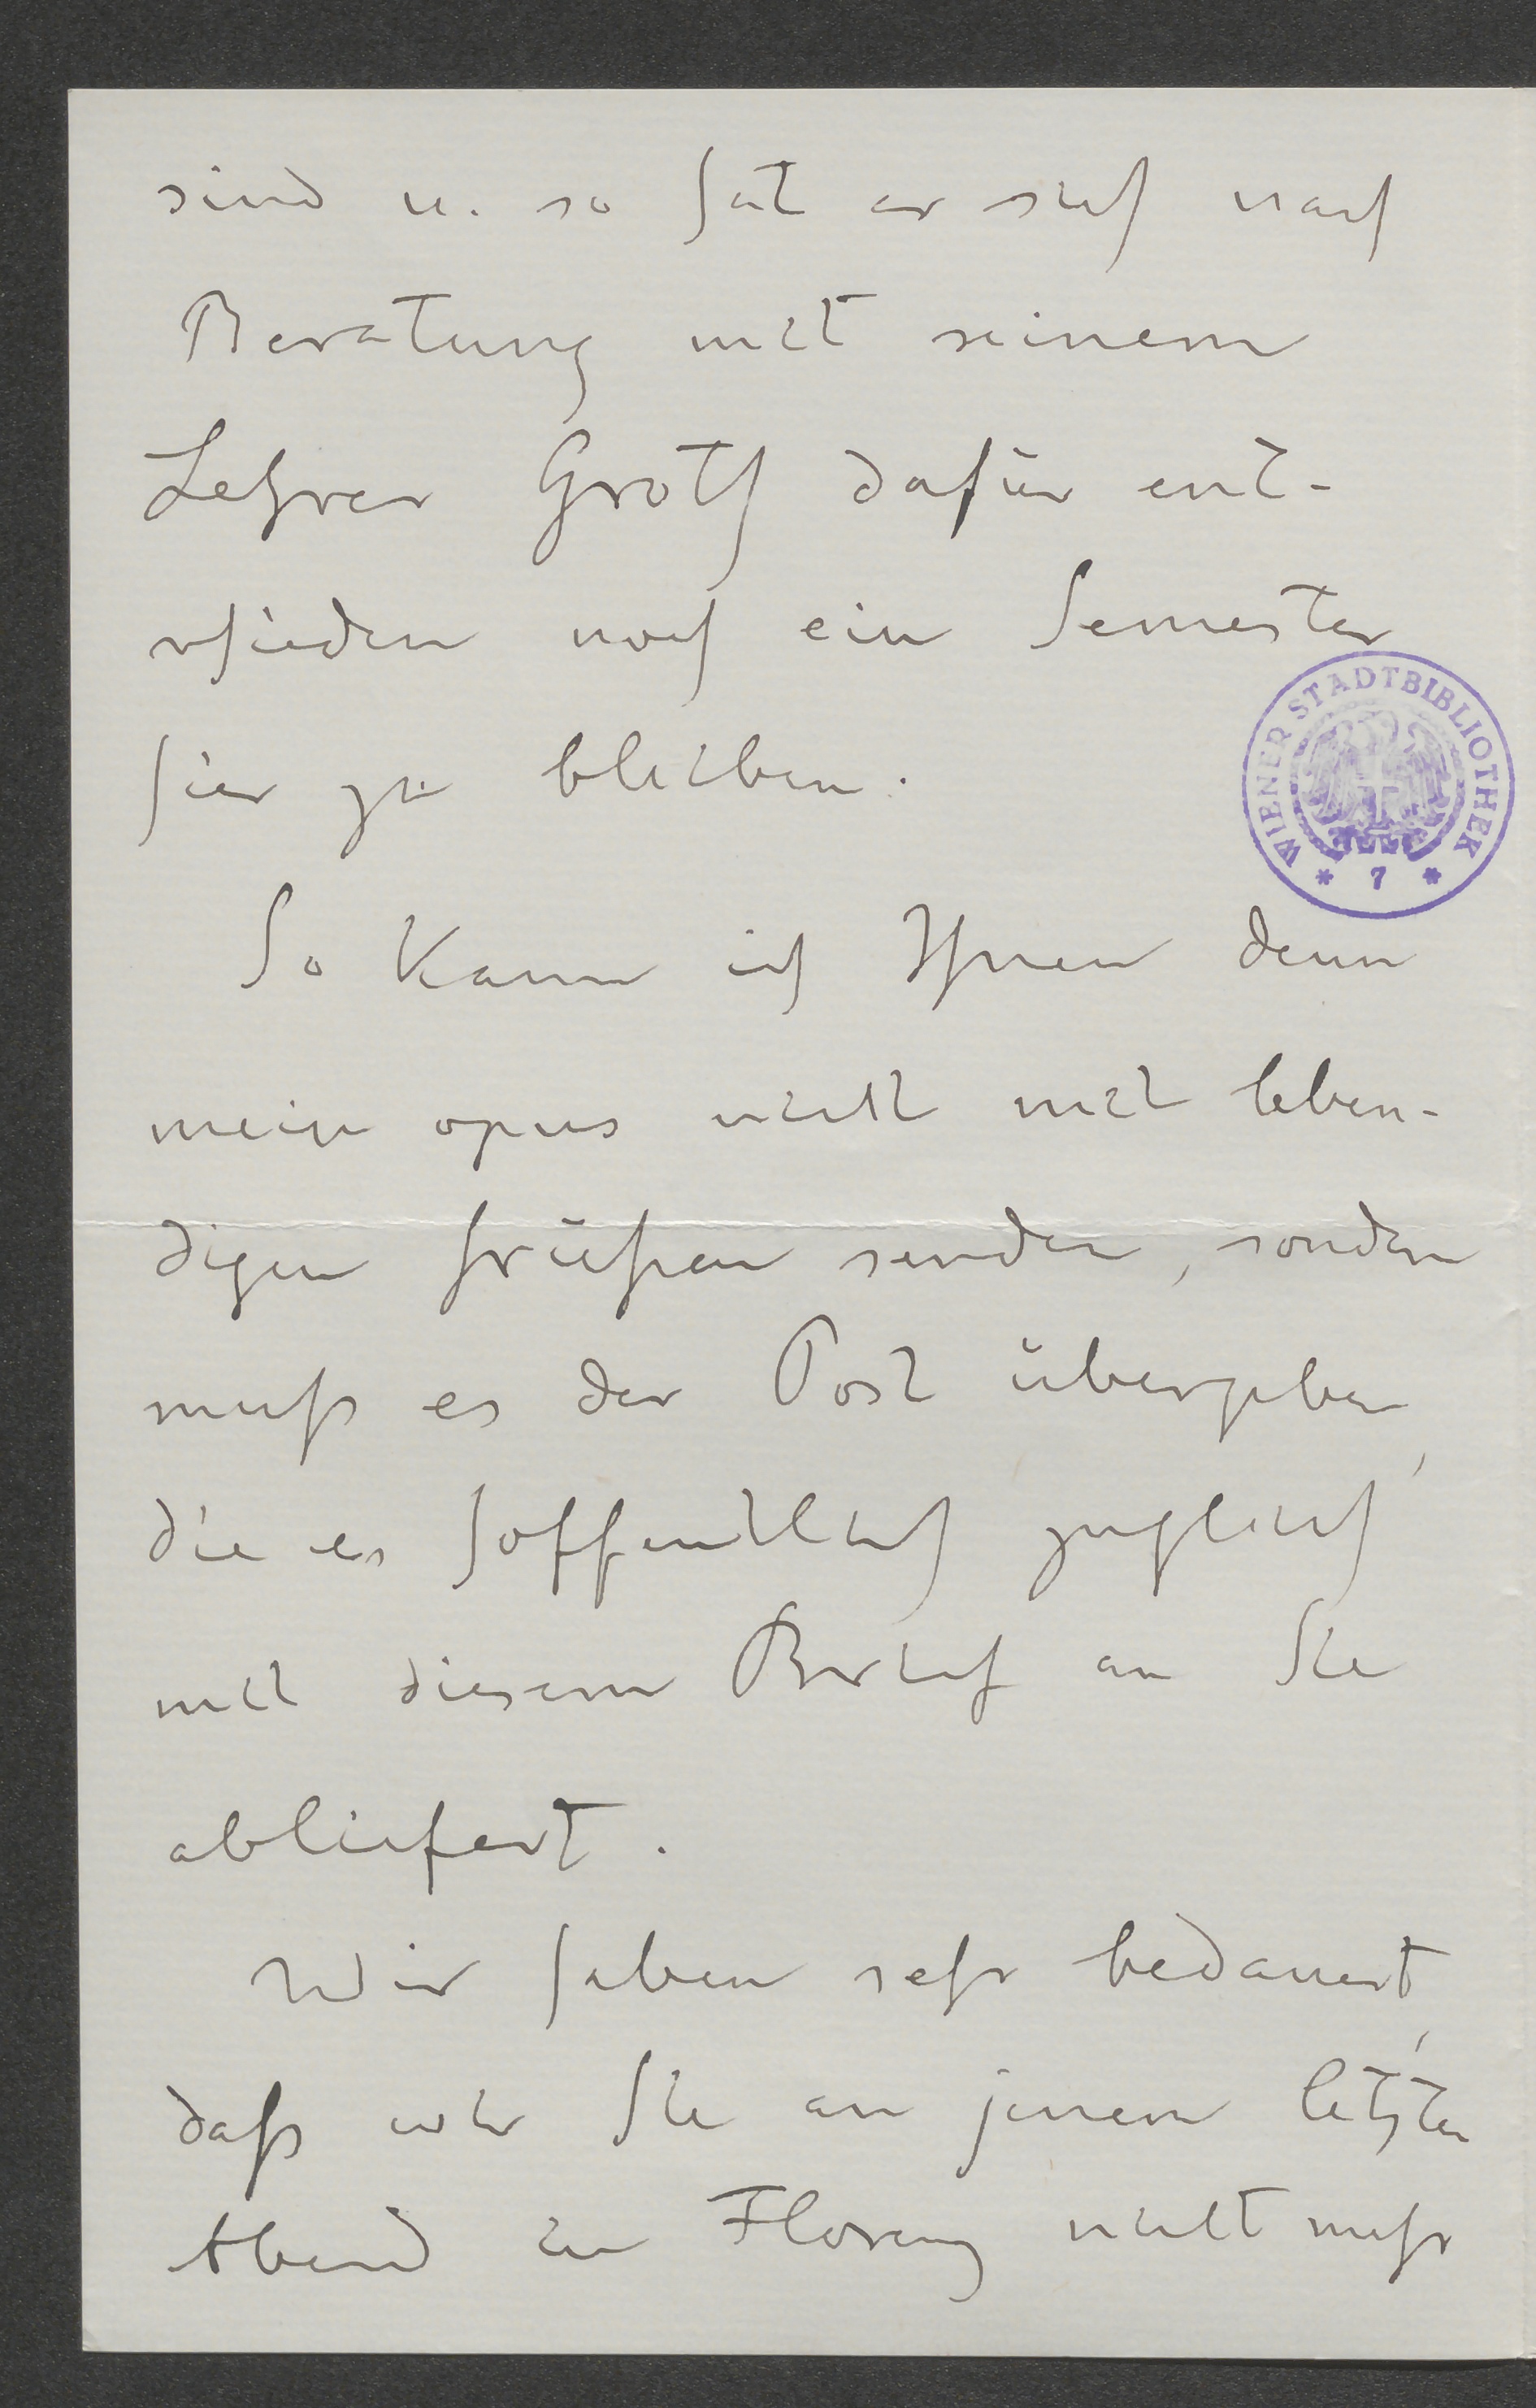 sind u. so hat er sich nach
Beratung mit seinem
Lehrer Groth dafür ent-
schieden noch ein Semester
hier zu bleiben.
So kann ich Ihnen denn
mein opus nicht mit leben-
digen Grüßen senden, sondern
muß es der Post übergeben,
die es hoffentlich zugleich
mit diesem Brief an Sie
abliefert.
Wir haben sehr bedauert,
daß wir Sie an jenem letzten
Abend in Florenz nicht mehr
WIENER STADTBIBLIOTHEK
* 7 *